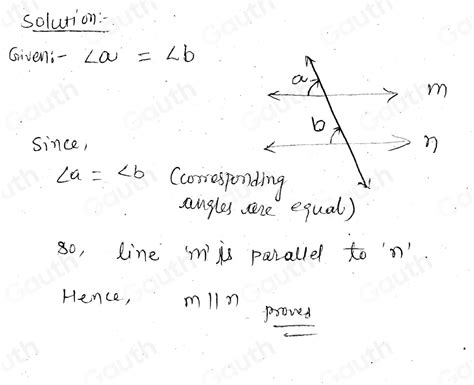 Solution:-
Given:- ∠a = ∠b
a
m
b
n
Since,
∠a = ∠b (corresponding
angles are equal)
so, line 'm' is parallel to 'n'.
Hence, m || n proves
Gauth